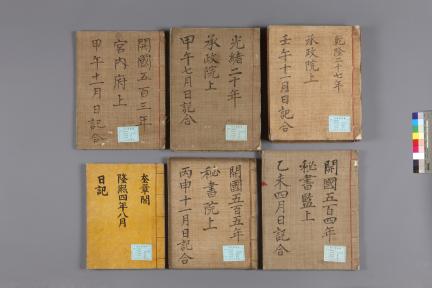 開國五百三年
宮內府上
甲午十一月日記合
光緒二十年
承政院上
甲午七月日記合
乾隆二十七年
承政院上
壬午十一月日記合
奎章閣
隆熙四年八月
日記
開國五百五年
秘書院上
丙申十一月日記合
開國五百四年
秘書監上
乙未四月日記合